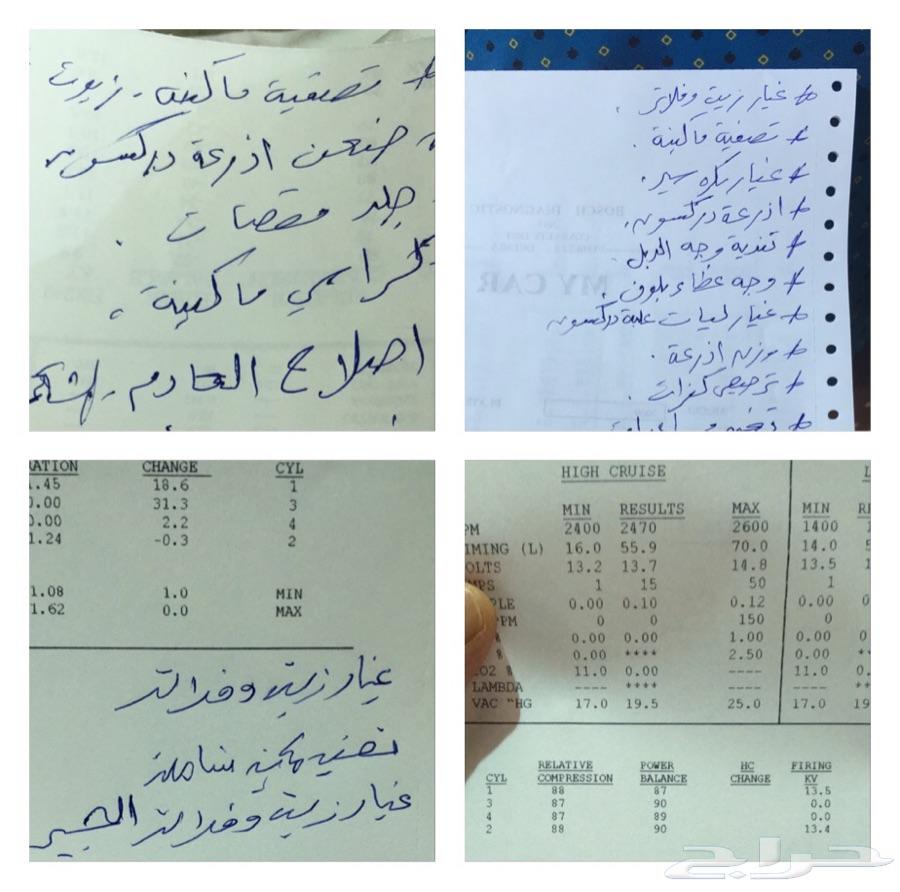 * تصفية ماكينه - زيوت
ضعف اذرعة دركسون
جلد مقصات .
كراسي ماكينة .
اصلاح العادم -
* غيار زيت وفلاتر .
* تصفية ماكينة .
* غيار بكره سير .
* اذرعة دركسون .
* وجه غطاء بلوف .
* غيار ليات علبة دركسون
* وزن اذرعة .
* ترصيص كفرات .
ATION CHANGE CYL
.45 18.6 1
0.00 31.3 3
0.00 2.2 4
1.24 -0.3 2
1.08 1.0 MIN
1.62 0.0 MAX
غيار زيت وفلاتر
تصفيه شامله
غيار زيت وفلاتر الجير
HIGH CRUISE
MIN RESULTS MAX MIN
PM 2400 2470 2600 1400
IMING (L) 16.0 55.9 70.0 14.0
OLTS 13.2 13.7 14.8 13.5
MPS 1 15 50 1
PLE 0.00 0.10 0.12 0.00
PPM 0 0 150 0
% 0.00 0.00 1.00 0.00
% 0.00 **** 2.50 0.00
CO2 % 11.0 0.00 ---- 11.0
LAMBDA ---- **** ---- ----
VAC "HG 17.0 19.5 25.0 17.0
CYL RELATIVE COMPRESSION POWER BALANCE HC CHANGE FIRING KV
1 88 87 13.5
3 87 90 0.0
4 87 89 0.0
2 88 90 13.4
حراج